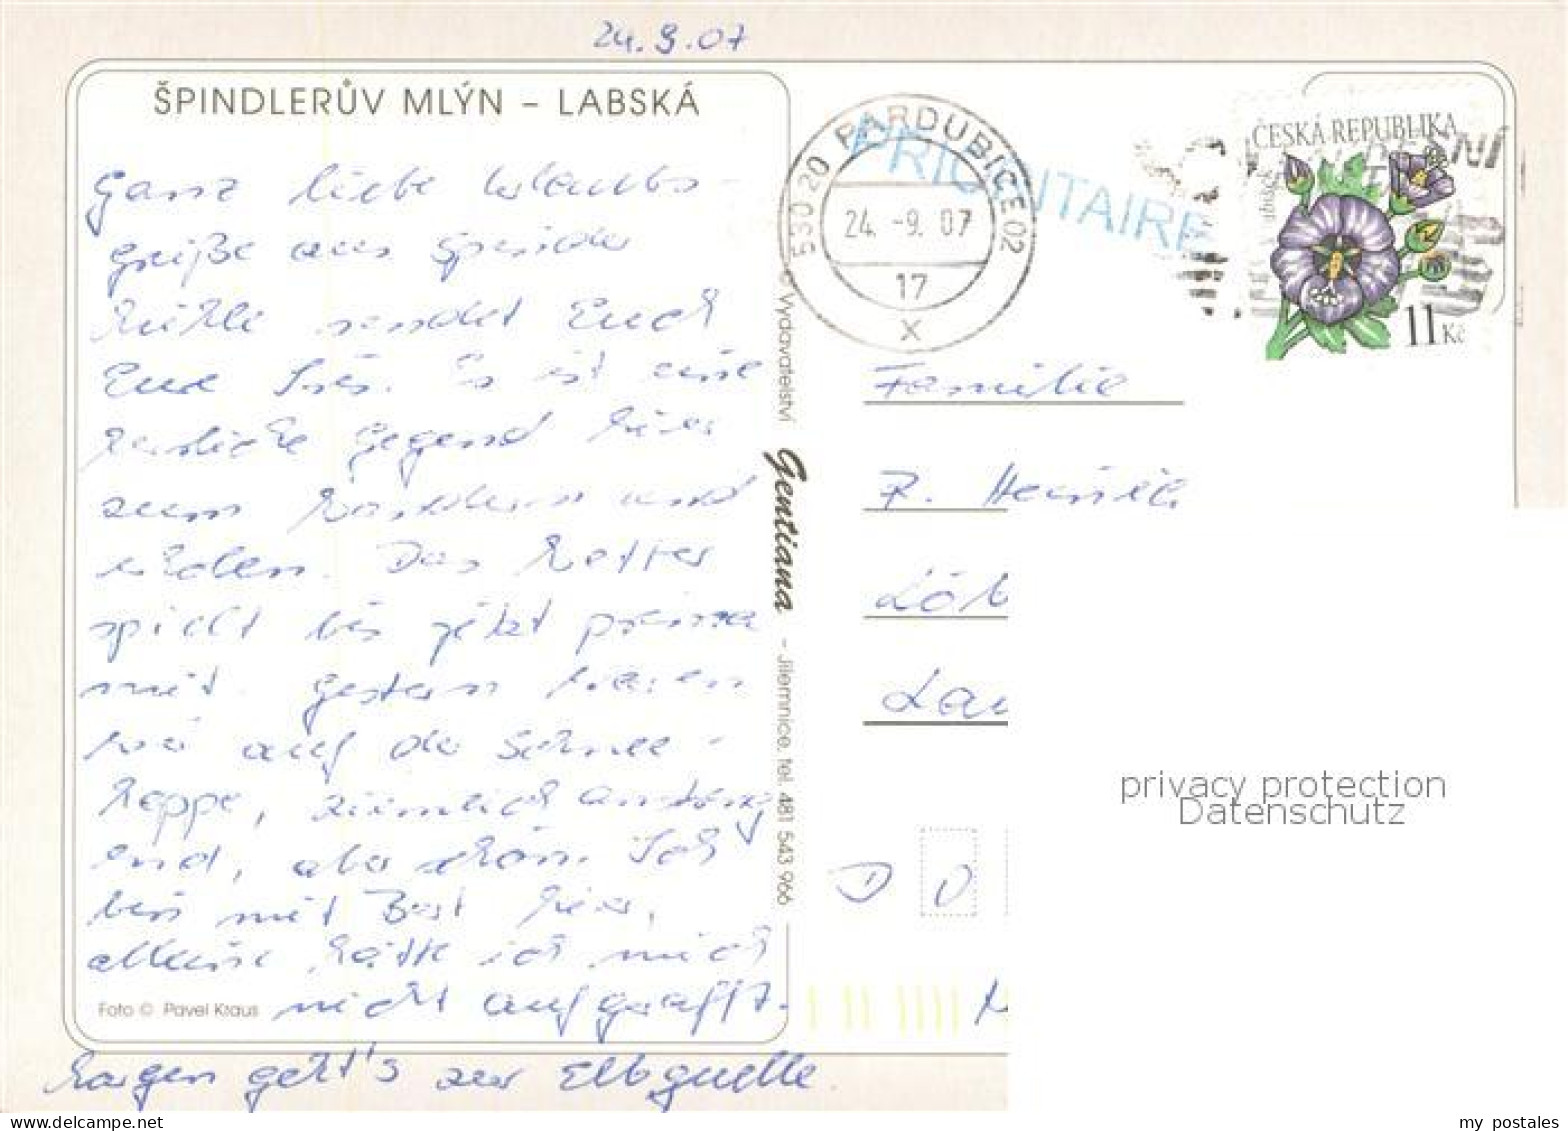 24.9.07
ŠPINDLERŮV MLÝN – LABSKÁ
Ganz liebe Urlaubs-
grüße aus Spindler
Mühle sendet Euch
Eure Iris. Es ist eine
herrliche Gegend hier
zum Wandern und
erholen. Das Wetter
spielt bis jetzt prima
mit. Gestern waren
wir auf der Schnee-
koppe, ziemlich anstreng
end, aber schön. Ich
bin mit Bert hier,
alleine hätte ich mich
nicht aufgerafft.
Morgen geht's zur Elbquelle
Foto © Pavel Kraus
© Vydavatelství Gentiana - Jilemnice, tel. 481 543 966
530 20 PARDUBICE 02
24. -9. 07
17
X
PRIORITAIRE
ČESKÁ REPUBLIKA
ibišek
11 Kč
Familie
R.
Löb
Lau
D 0
privacy protection
Datenschutz
my postales